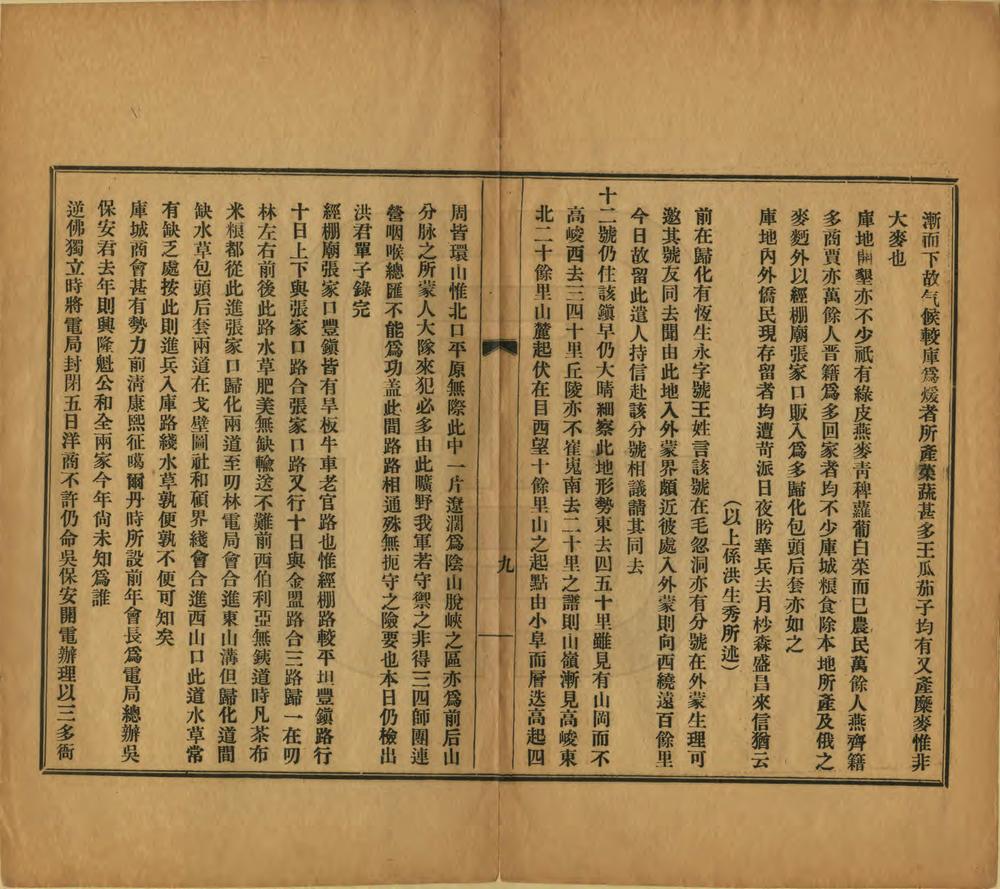 漸而下故气候較庫爲煖者所產菜蔬甚多王瓜茄子均有又產糜麥惟非
大麥也
庫地開墾亦不少祇有綠皮燕麥靑稞蘿葡白菜而已農民萬餘人燕齊籍
多商賈亦萬餘人晋籍爲多回家者均不少庫城粮食除本地所產及俄之
麥麪外以經棚廟張家口販入爲多歸化包頭后套亦如之
庫地內外僑民現存留者均遭苛派日夜盼華兵去月杪森盛昌來信猶云
（以上係洪生秀所述）
前在歸化有恆生永字號王姓言該號在毛忽洞亦有分號在外蒙生理可
邀其號友同去聞由此地入外蒙界頗近彼處入外蒙則向西繞遠百餘里
今日故留此遣人持信赴該分號相議請其同去
十二號仍住該鎮早仍大晴細察此地形勢東去四五十里雖見有山岡而不
高峻西去三四十里丘陵亦不崔嵬南去二十里之譜則山嶺漸見高峻東
北二十餘里山麓起伏在目西望十餘里山之起點由小阜而層迭高起四
九
周皆環山惟北口平原無際此中一片遼濶爲陰山脫峽之區亦爲前后山
分脉之所蒙人大隊來犯必多由此曠野我軍若守禦之非得三四師團連
營咽喉總匯不能爲功盖此間路路相通殊無扼守之險要也本日仍檢出
洪君單子錄完
經棚廟張家口豐鎮皆有旱板牛車老官路也惟經棚路較平坦豐鎮路行
十日上下與張家口路合張家口路又行十日與金盟路合三路歸一在叨
林左右前後此路水草肥美無缺輸送不難前西伯利亞無銕道時凡茶布
米粮都從此進張家口歸化兩道至叨林電局會合進東山溝但歸化道間
缺水草包頭后套兩道在戈壁圖社和碩界綫會合進西山口此道水草常
有缺乏處按此則進兵入庫路綫水草孰便孰不便可知矣
庫城商會甚有勢力前清康熙征噶爾丹時所設前年會長爲電局總辦吳
保安君去年則興隆魁公和全兩家今年尙未知爲誰
逆佛獨立時將電局封閉五日洋商不許仍命吳保安開電辦理以三多衙